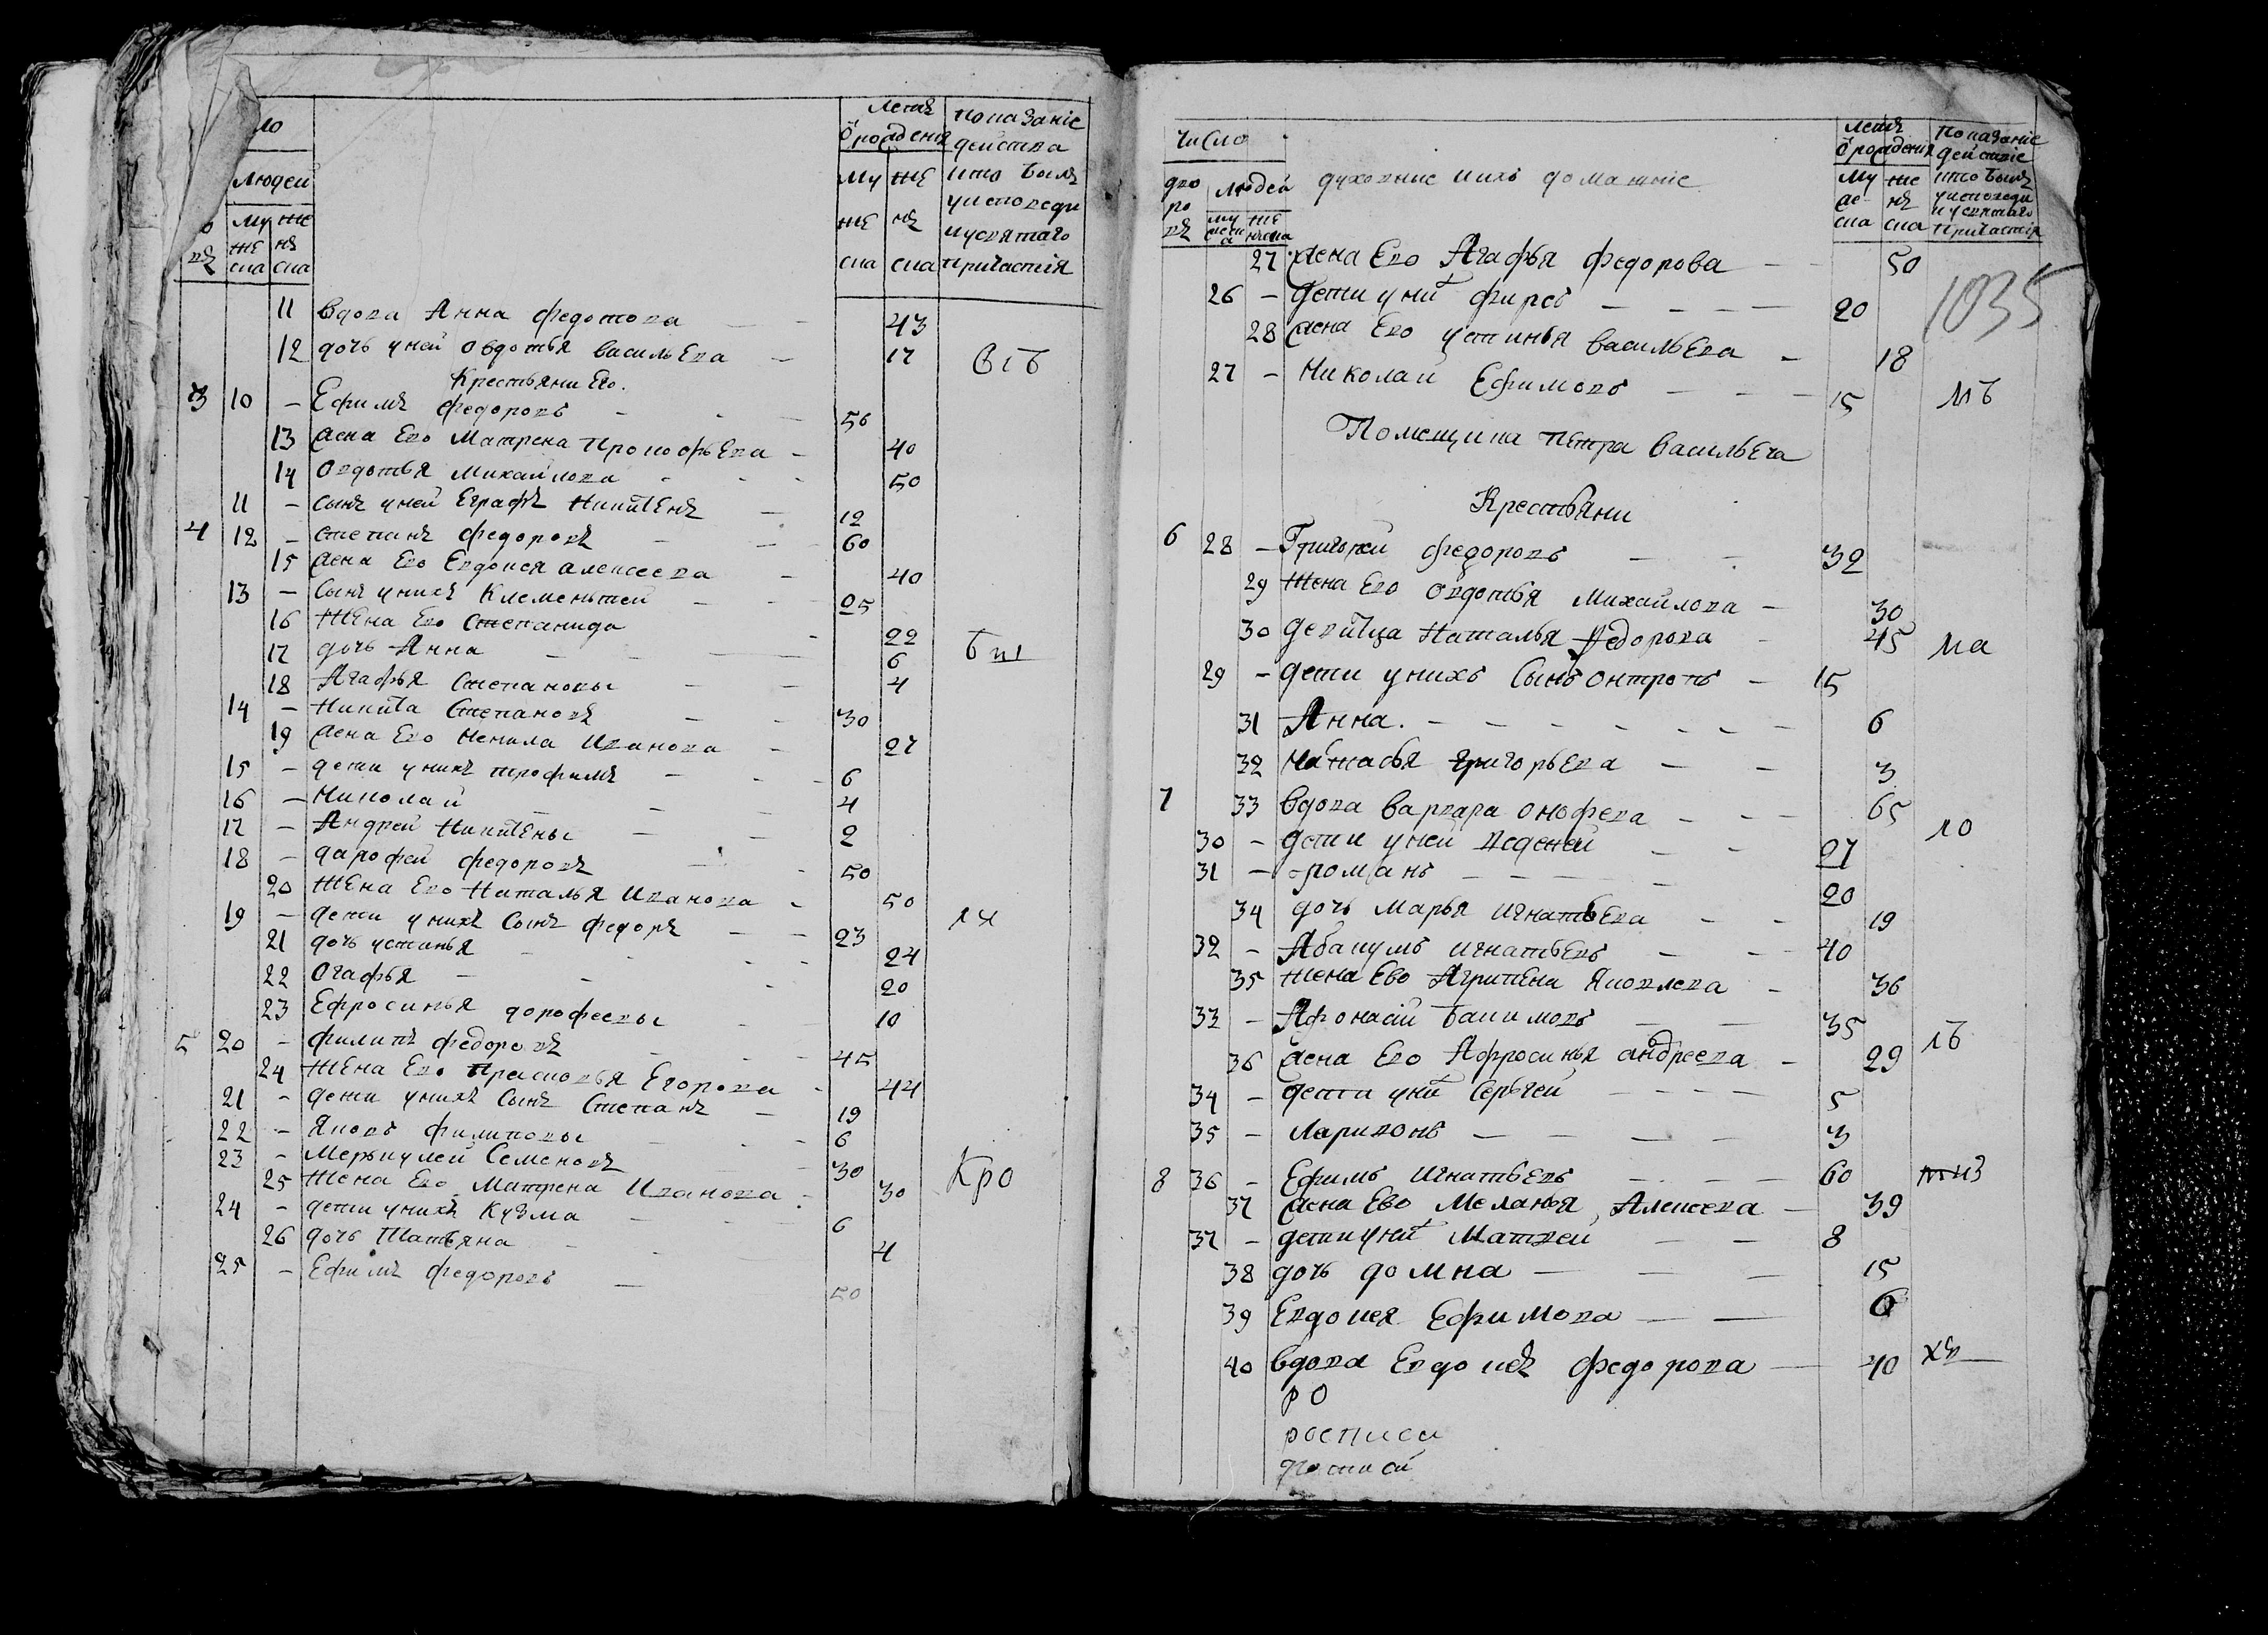 ло
Людей
му же
же нъ
ска ска
Летъ
Ѿ рождения
му же
же нъ
ска ска
показаніе
действа
кто былъ
у исповеди
и у святаго
причастія
11 вдова Анна федотова — 43
12 дочь у ней овдотья васильева — 17
Крестьяни Его.
3 10 — Ефимъ федоровъ — 56
13 жена Его Матрена Прокофьева — 40
14 овдотья михаилова — 50
11 — сынъ у ней Еграфъ Никитенъ — 12
4 12 — степанъ федоровъ — 60
15 жена Его Евдокея алексеева — 40
13 — Сынъ у нихъ Клеменьтей — 25
16 жена Его Степанида 22
17 дочь Анна — 6
18 Агафья Степановы — 4
14 — Никита Степановъ — 30
19 жена Его Ненила Иванова — 27
15 — дети у нихъ трофимъ — 6
16 — Николай — 4
17 — Андрей Никитены — 2
18 — дарофей федоровъ — 50
20 жена Его Наталья Иванова — 50
19 — дети у нихъ Сынъ федоръ — 23
21 дочь устинья — 24
22 Огафья — 20
23 Ефросинья дорофеевы — 10
5 20 — филипъ федоровъ — 45
24 жена Его Прасковья Егорова — 44
21 — дети у нихъ Сынъ Степанъ — 19
22 — Яковъ филиповы — 6
23 — Меркулей Семеновъ — 30
25 жена Его Матрена Иванова — 30
24 — дети у нихъ Кузма — 6
26 дочь Татьяна — 4
25 — Ефимъ федоровъ — 50
Кро
число
дво
ро
въ
людей
му же
духовние и ихъ домашніе
летъ
Ѿ рождения
му же
же нъ
ска ска
Показаніе
действіе
кто былъ
у исповеди
и у святаго
причастія
27 жена Его Агафья федорова — 50
1035
26 — дети у нихъ фирсъ — 20
28 жена Его устинья васильева — 18
27 — Николай Ефимовъ — 15
Помещика петра васильева
Крестьяни
6 28 — Григорей федоровъ — 32
29 жена Его овдотья михаилова — 30
30 девица Наталья Федорова 45
29 — дети у нихъ Сынъ онтропъ — 15
31 Анна. — 6
32 Настасья григорьева — 3
7 33 вдова варвара онофева — 65
30 — дети у ней Феденей — 27
31 — романъ — 20
34 дочь Марья игнатьева — 19
32 — Абакумъ игнатьевъ — 40
35 жена Ево Агрипена Яковлева — 36
33 — Афонасий бакимовъ — 35
36 жена Его Афросинья андреева — 29
34 — дети у нихъ Сергей — 5
35 — Ларивонъ — 3
8 36 — Ефимъ игнатьевъ — 60
37 жена Ево Меланья Алексеева — 39
37 — дети у нихъ Матвей — 8
38 дочь домна — 15
39 Евдокея Ефимова — 6
40 вдова Евдокея федорова — 40
РО
росписи
росписи